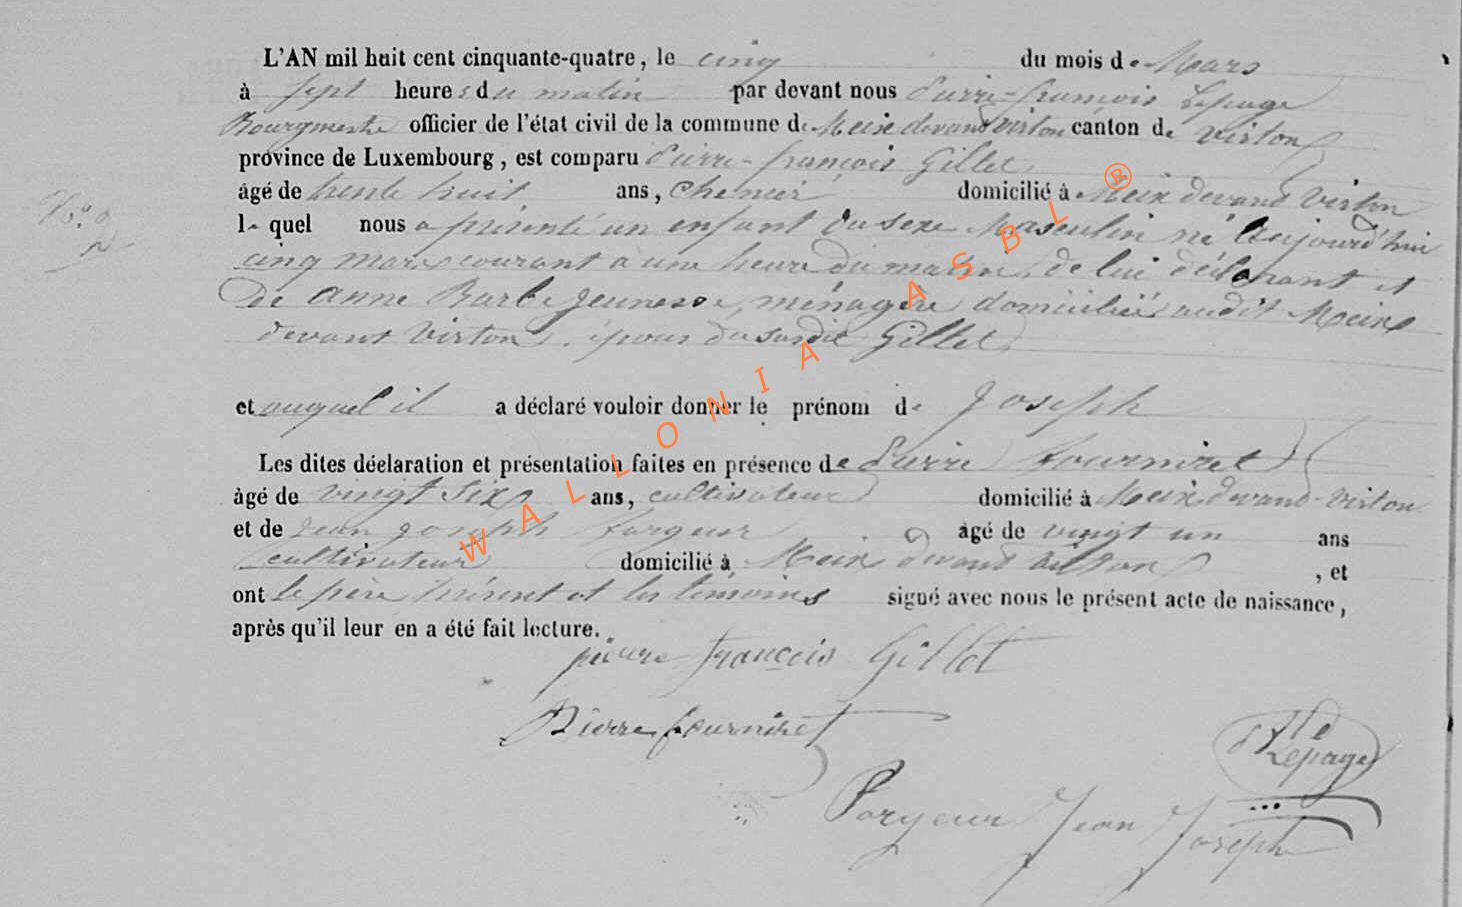 L'AN mil huit cent cinquante-quatre, le cinq du mois de Mars
à sept heures du matin par devant nous Pierre-françois Lepage
Bourgmestre officier de l'état civil de la commune de Meix devant virton canton de virton
province de Luxembourg, est comparu Pierre-françois Gillet
âgé de trente huit ans, domicilié à Meix devant Virton
lequel nous a présenté un enfant du sexe Masculin né aujourd'hui
cinq mars courant à une heure du matin, de lui déclarant et
de anne Barbe Jeunesse, ménagère domiciliée audit Meix
devant Virton, épouse du susdit Gillet
et auquel il a déclaré vouloir donner le prénom de Joseph
Les dites déclaration et présentation faites en présence de Pierre fourniret
âgé de vingt six ans, cultivateur domicilié à Meix devant-virton
et de Jean joseph âgé de vingt un ans
cultivateur domicilié à Meix devant virton, et
ont le père présent et les témoins signé avec nous le présent acte de naissance,
après qu'il leur en a été fait lecture.
pierre françois Gillet
Pierre fourniret
Lepage
Jean Joseph
N° 9
WALLONIA ASBL ®